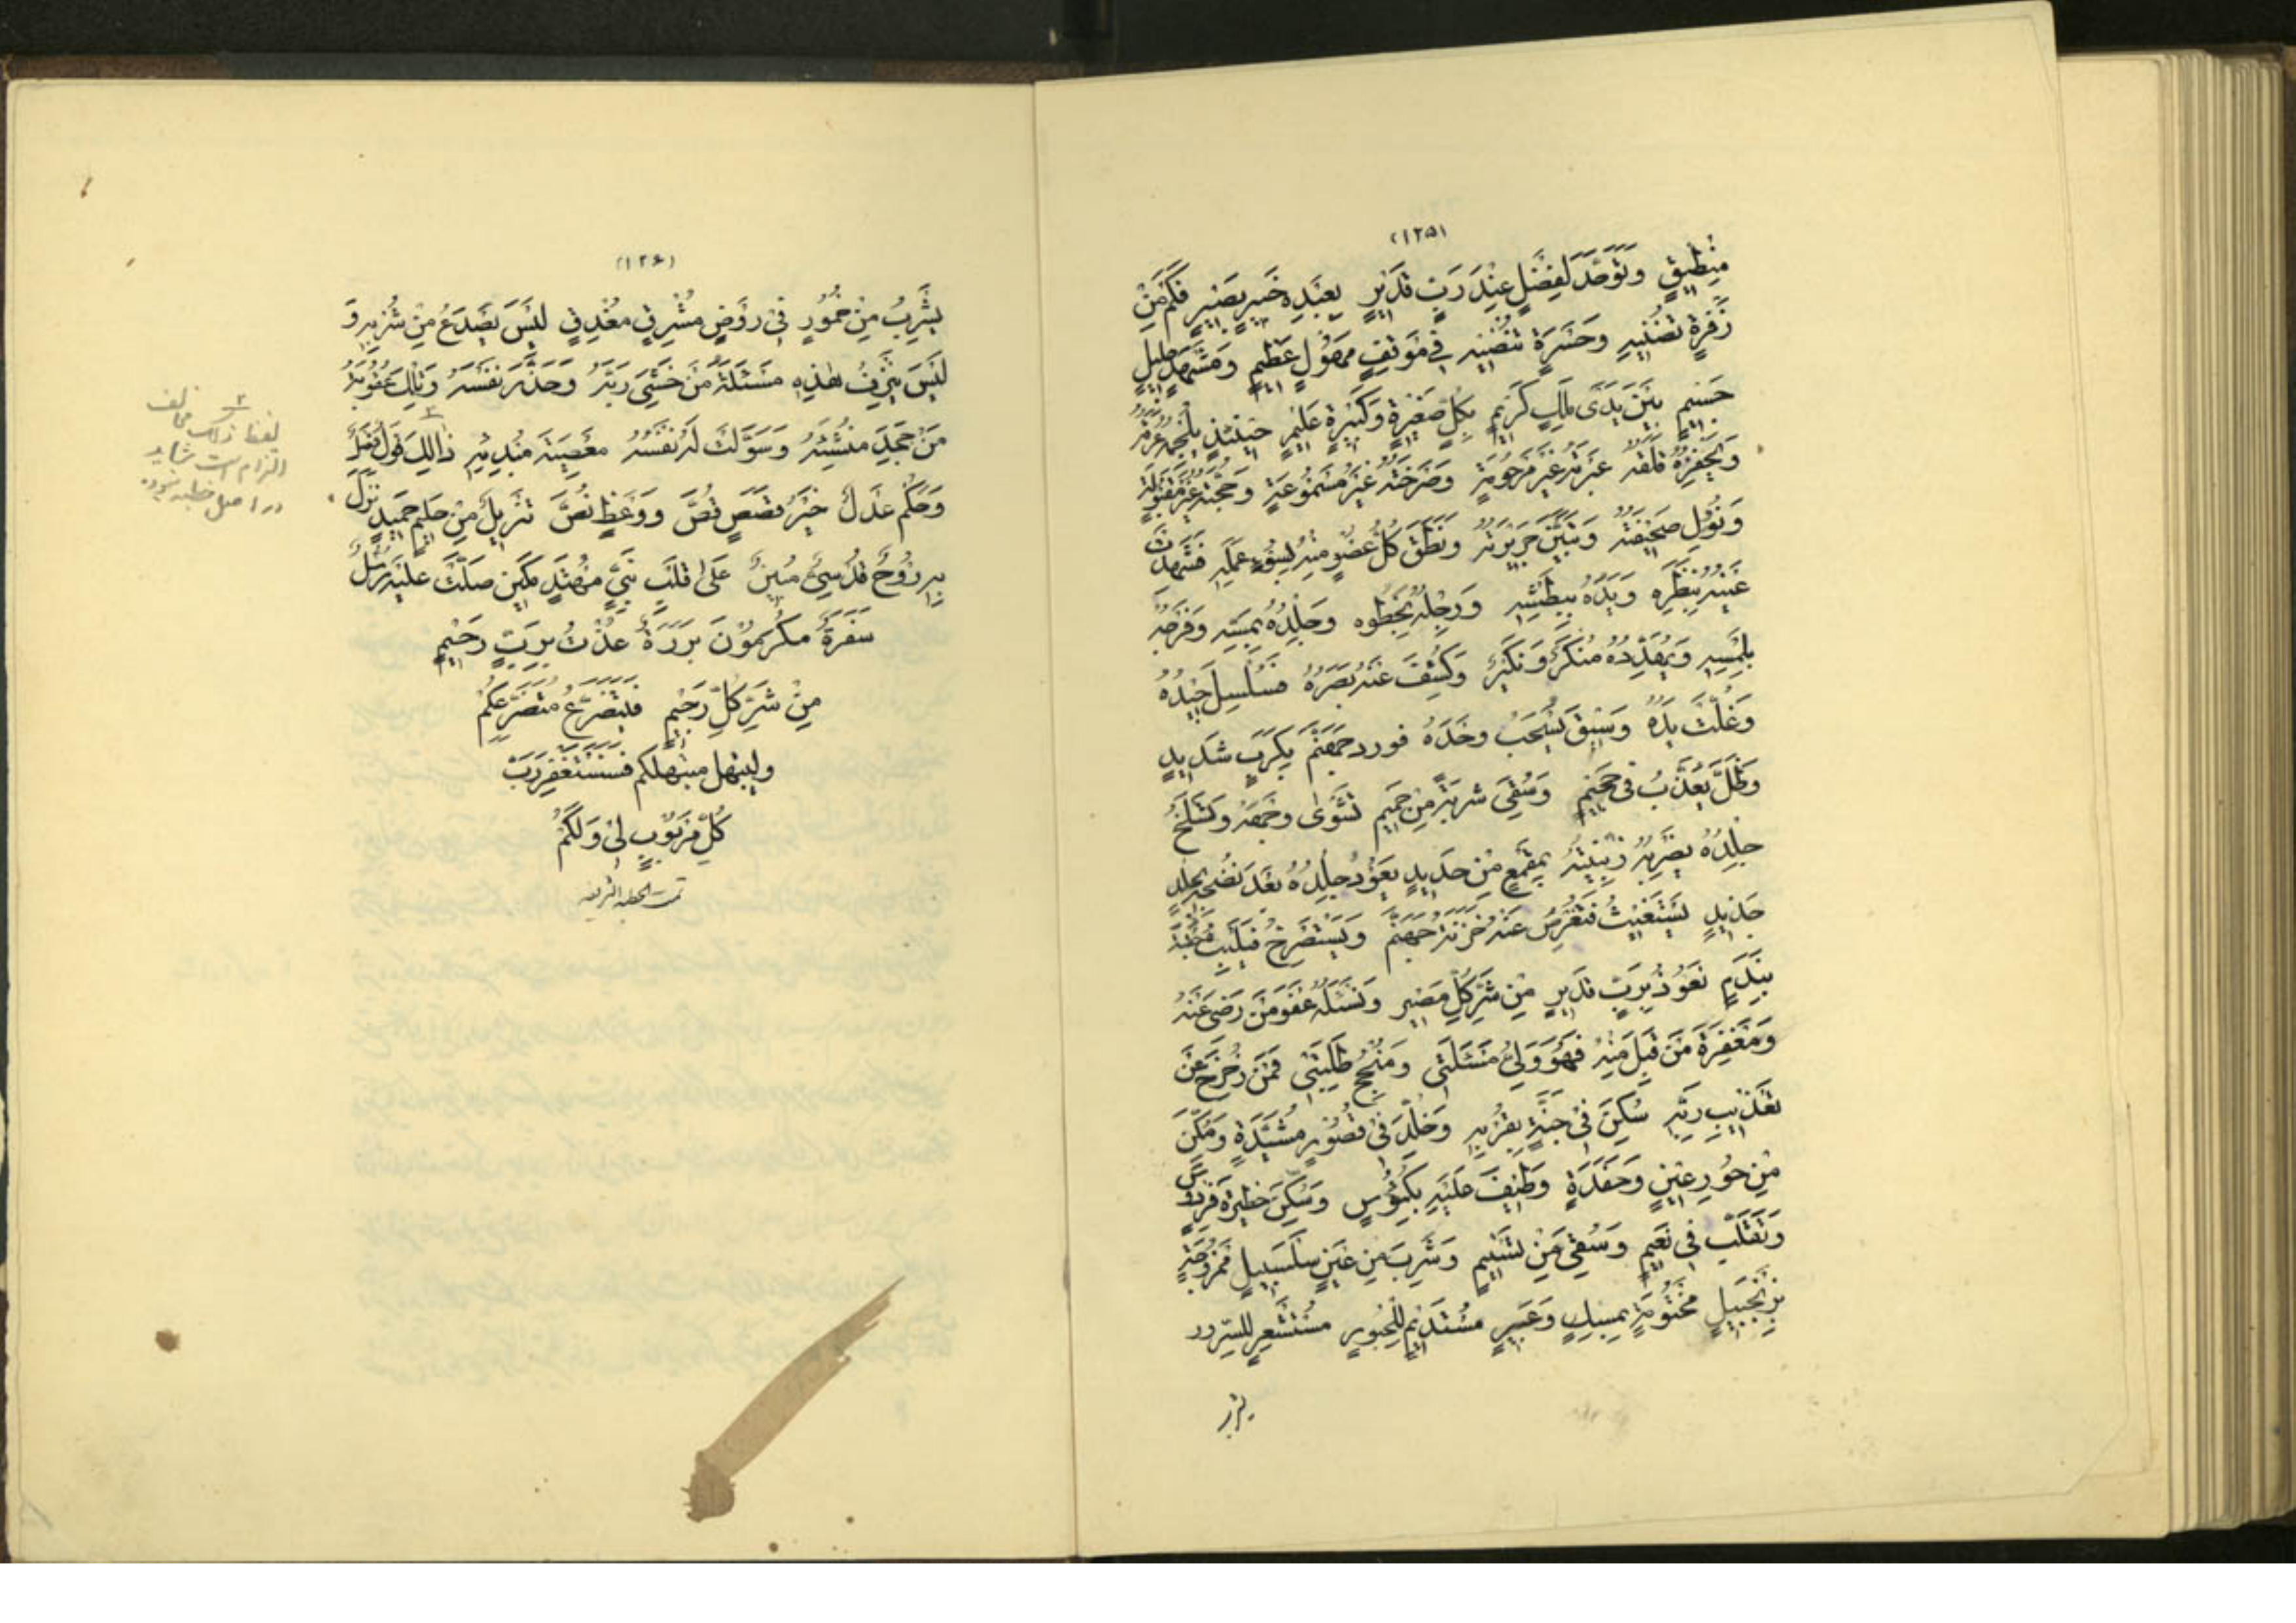 (١٢٥)
مِنْطِيقٍ وَتَوَحَّدَ لِفَصْلٍ عِنْدَ رَبٍّ قَدِيرٍ بِعَبْدِهِ خَبِيرٍ بَصِيرٍ فَكَمْ مِنْ
زَفْرَةٍ تُضْنِيهِ وَحَسْرَةٍ تُنْضِيهِ فِي مَوْقِفٍ مَهُولٍ عَظِيمٍ وَمَشْهَدٍ جَلِيلٍ
جَسِيمٍ بَيْنَ يَدَيْ مَلِكٍ كَرِيمٍ بِكُلِّ صَغِيرَةٍ وَكَبِيرَةٍ عَلِيمٍ حِينَئِذٍ يُلْجِمُهُ عَرَقُهُ
وَيَحْفِزُهُ قَلَقُهُ عَبْرَتُهُ غَيْرُ مَرْحُومَةٍ وَصَرْخَتُهُ غَيْرُ مَسْمُوعَةٍ وَحُجَّتُهُ غَيْرُ مَقْبُولَةٍ
وَتَؤُلُ صَحِيفَتُهُ وَتَبَيَّنَ جَرِيرَتُهُ وَنَطَقَ كُلُّ عُضْوٍ مِنْهُ بِسُوءِ عَمَلِهِ فَشَهِدَتْ
عَيْنُهُ بِنَظَرِهِ وَيَدُهُ بِبَطْشِهِ وَرِجْلُهُ بِخَطْوِهِ وَجِلْدُهُ بِمَسِّهِ وَفَرْجُهُ
بِلَمْسِهِ وَيُهَدِّدُهُ مُنْكَرٌ وَنَكِيرٌ وَكُشِفَ عَنْهُ بَصَرُهُ فَسُلْسِلَ جِيدُهُ
وَغُلَّتْ يَدُهُ وَسِيقَ يُسْحَبُ وَحْدَهُ فورد جَهَنَّمَ بِكَرْبٍ شَدِيدٍ
وَظَلَّ يُعَذَّبُ فِي جَحِيمٍ وَسُقِيَ شَرْبَةً مِنْ حَمِيمٍ تَشْوِي وَجْهَهُ وَتَسْلَخُ
جِلْدَهُ يَضْرِبُهُ زِبْنِيَتُهُ بِمِقْمَعٍ مِنْ حَدِيدٍ يَعُودُ جِلْدُهُ بَعْدَ نَضْجِهِ بِجِلْدٍ
جَدِيدٍ يَسْتَغِيثُ فَتُعْرِضُ عَنْهُ خَزَنَةُ جَهَنَّمَ وَيَسْتَصْرِخُ فَيَلْبَثُ حُقْبَةً
بِنَدَمٍ نَعُوذُ بِرَبٍّ قَدِيرٍ مِنْ شَرِّ كُلِّ مَصِيرٍ وَنَسْئَلُهُ عَفْوَ مَنْ رَضِيَ عَنْهُ
وَمَغْفِرَةَ مَنْ قَبِلَ مِنْهُ فَهُوَ وَلِيُّ مَسْئَلَتِي وَمُنْجِحُ طَلِبَتِي فَمَنْ زُحْزِحَ عَنْ
تَعْذِيبِ رَبِّهِ سُكِنَ فِي جَنَّةٍ بِقُرْبِهِ وَخُلِّدَ فِي قُصُورٍ مُشَيَّدَةٍ وَمُكِّنَ
مِنْ حُورٍ عِينٍ وَحَفَدَةٍ وَطِيفَ عَلَيْهِ بِكُؤُسٍ وَسُكِنَ حَظِيرَةَ فِرْدَوْسٍ
وَتَقَلَّبَ فِي نَعِيمٍ وَسُقِيَ مِنْ تَسْنِيمٍ وَشَرِبَ مِنْ عَيْنٍ سَلْسَبِيلٍ مَمْزُوجَةٍ
بِزَنْجَبِيلٍ مَخْتُومَةٍ بِمِسْكٍ وَعَبِيرٍ مُسْتَدِيمٍ لِلْحُبُورِ مُسْتَشْعِرٍ لِلسُّرُور
يشرب
(١٢۶)
يَشْرَبُ مِنْ خُمُورٍ فِي رَوْضٍ مُشْرِقٍ مُغْدِقٍ لَيْسَ يَصْدَعُ مِنْ شُرْبِهِ وَ
لَيْسَ يَنْزِفُ هٰذِهِ مَسْئَلَةُ مَنْ خَشِيَ رَبَّهُ وَحَذَّرَ نَفْسَهُ وَتِلْكَ عُقُوبَةُ
مَنْ جَحَدَ مُنْشِئَهُ وَسَوَّلَتْ لَهُ نَفْسُهُ مَعْصِيَةَ مُبْدِئِهِ ذَالِكَ قَوْلٌ فَصْلٌ
وَحُكْمٌ عَدْلٌ خَيْرُ قَصَصٍ قُصَّ وَوَعْظٍ نُصَّ تَنْزِيلٌ مِنْ حَكِيمٍ حَمِيدٍ نَزَلَ
بِهِ رُوحٌ قُدُسِيٌّ مُبِينٌ عَلَى قَلْبِ نَبِيٍّ مُهْتَدٍ مَكِينٍ صَلَّتْ عَلَيْهِ رُسُلٌ
سَفَرَةٌ مُكْرَمُونَ بَرَرَةٌ عُذْتُ بِرَبٍّ رَحِيمٍ
مِنْ شَرِّ كُلِّ رَجِيمٍ فَلْيَتَضَرَّعْ مُتَضَرِّعُكُمْ
وليبتهل مبتهلكم فَسَنَسْتَغْفِرُ رَبَّ
كُلِّ مَرْبُوبٍ لِي وَلَكُمْ
تمت الخطبة الشريفة
٢
لفظ ذلك مخالف
التزام است شايد
در اصل خطبه نبوده